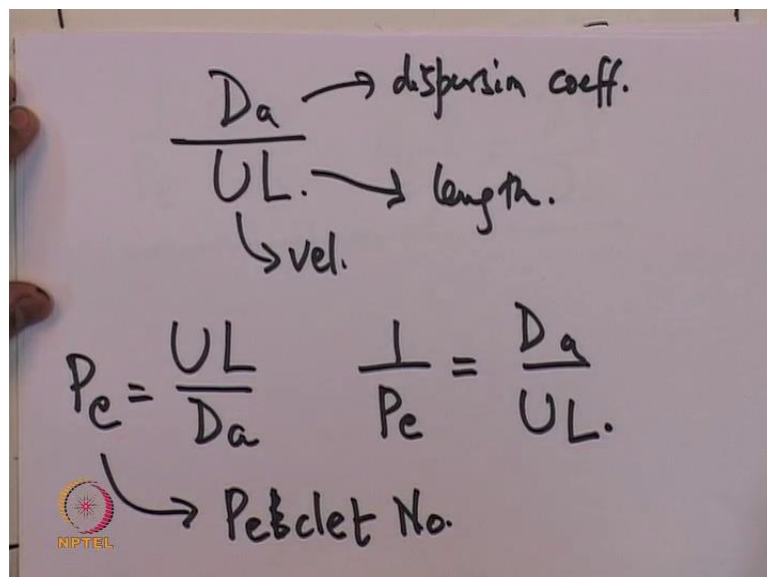 Da → dispersion coeff.
UL. → length.
↳ vel.
Pe = UL/Da 1/Pe = Da/UL.
→ Peclet No.
NPTEL